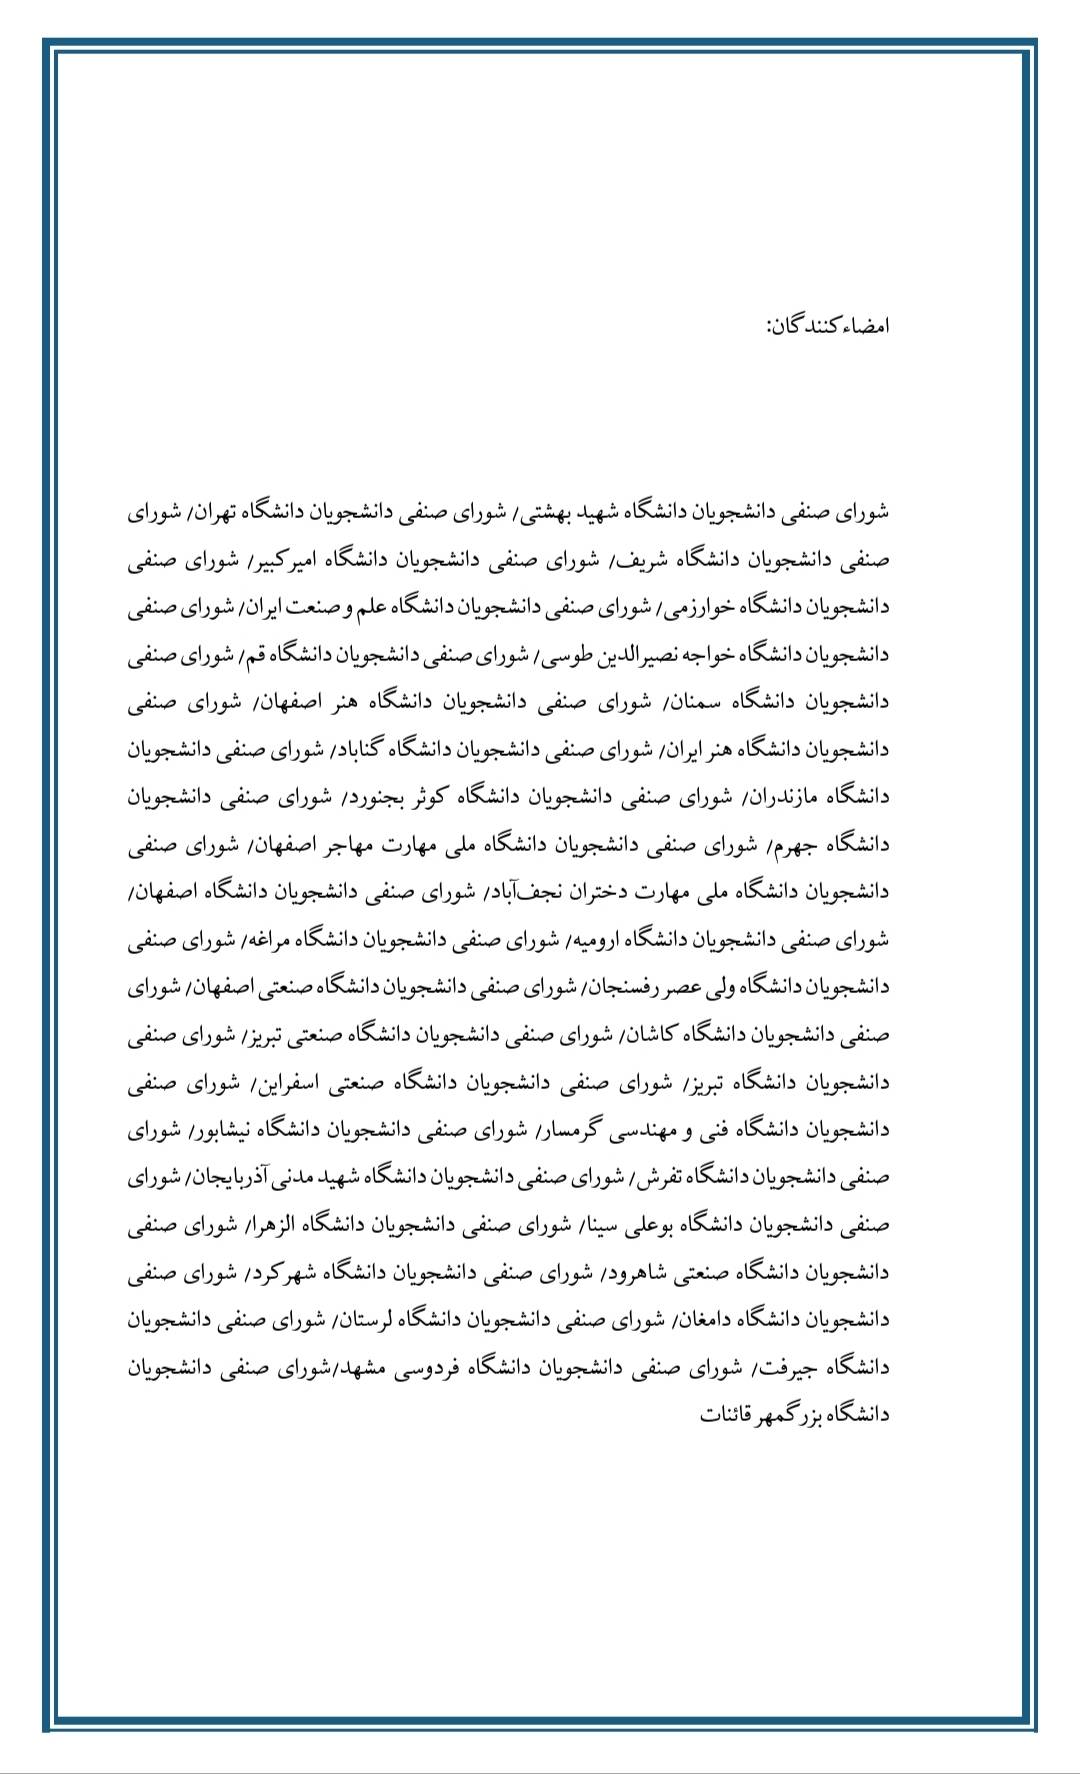 امضاءکنندگان:
شورای صنفی دانشجویان دانشگاه شهید بهشتی/ شورای صنفی دانشجویان دانشگاه تهران/ شورای
صنفی دانشجویان دانشگاه شریف/ شورای صنفی دانشجویان دانشگاه امیرکبیر/ شورای صنفی
دانشجویان دانشگاه خوارزمی/ شورای صنفی دانشجویان دانشگاه علم و صنعت ایران/ شورای صنفی
دانشجویان دانشگاه خواجه نصیرالدین طوسی/ شورای صنفی دانشجویان دانشگاه قم/ شورای صنفی
دانشجویان دانشگاه سمنان/ شورای صنفی دانشجویان دانشگاه هنر اصفهان/ شورای صنفی
دانشجویان دانشگاه هنر ایران/ شورای صنفی دانشجویان دانشگاه گناباد/ شورای صنفی دانشجویان
دانشگاه مازندران/ شورای صنفی دانشجویان دانشگاه کوثر بجنورد/ شورای صنفی دانشجویان
دانشگاه جهرم/ شورای صنفی دانشجویان دانشگاه ملی مهارت مهاجر اصفهان/ شورای صنفی
دانشجویان دانشگاه ملی مهارت دختران نجف‌آباد/ شورای صنفی دانشجویان دانشگاه اصفهان/
شورای صنفی دانشجویان دانشگاه ارومیه/ شورای صنفی دانشجویان دانشگاه مراغه/ شورای صنفی
دانشجویان دانشگاه ولی عصر رفسنجان/ شورای صنفی دانشجویان دانشگاه صنعتی اصفهان/ شورای
صنفی دانشجویان دانشگاه کاشان/ شورای صنفی دانشجویان دانشگاه صنعتی تبریز/ شورای صنفی
دانشجویان دانشگاه تبریز/ شورای صنفی دانشجویان دانشگاه صنعتی اسفراین/ شورای صنفی
دانشجویان دانشگاه فنی و مهندسی گرمسار/ شورای صنفی دانشجویان دانشگاه نیشابور/ شورای
صنفی دانشجویان دانشگاه تفرش/ شورای صنفی دانشجویان دانشگاه شهید مدنی آذربایجان/ شورای
صنفی دانشجویان دانشگاه بوعلی سینا/ شورای صنفی دانشجویان دانشگاه الزهرا/ شورای صنفی
دانشجویان دانشگاه صنعتی شاهرود/ شورای صنفی دانشجویان دانشگاه شهرکرد/ شورای صنفی
دانشجویان دانشگاه دامغان/ شورای صنفی دانشجویان دانشگاه لرستان/ شورای صنفی دانشجویان
دانشگاه جیرفت/ شورای صنفی دانشجویان دانشگاه فردوسی مشهد/شورای صنفی دانشجویان
دانشگاه بزرگمهر قائنات